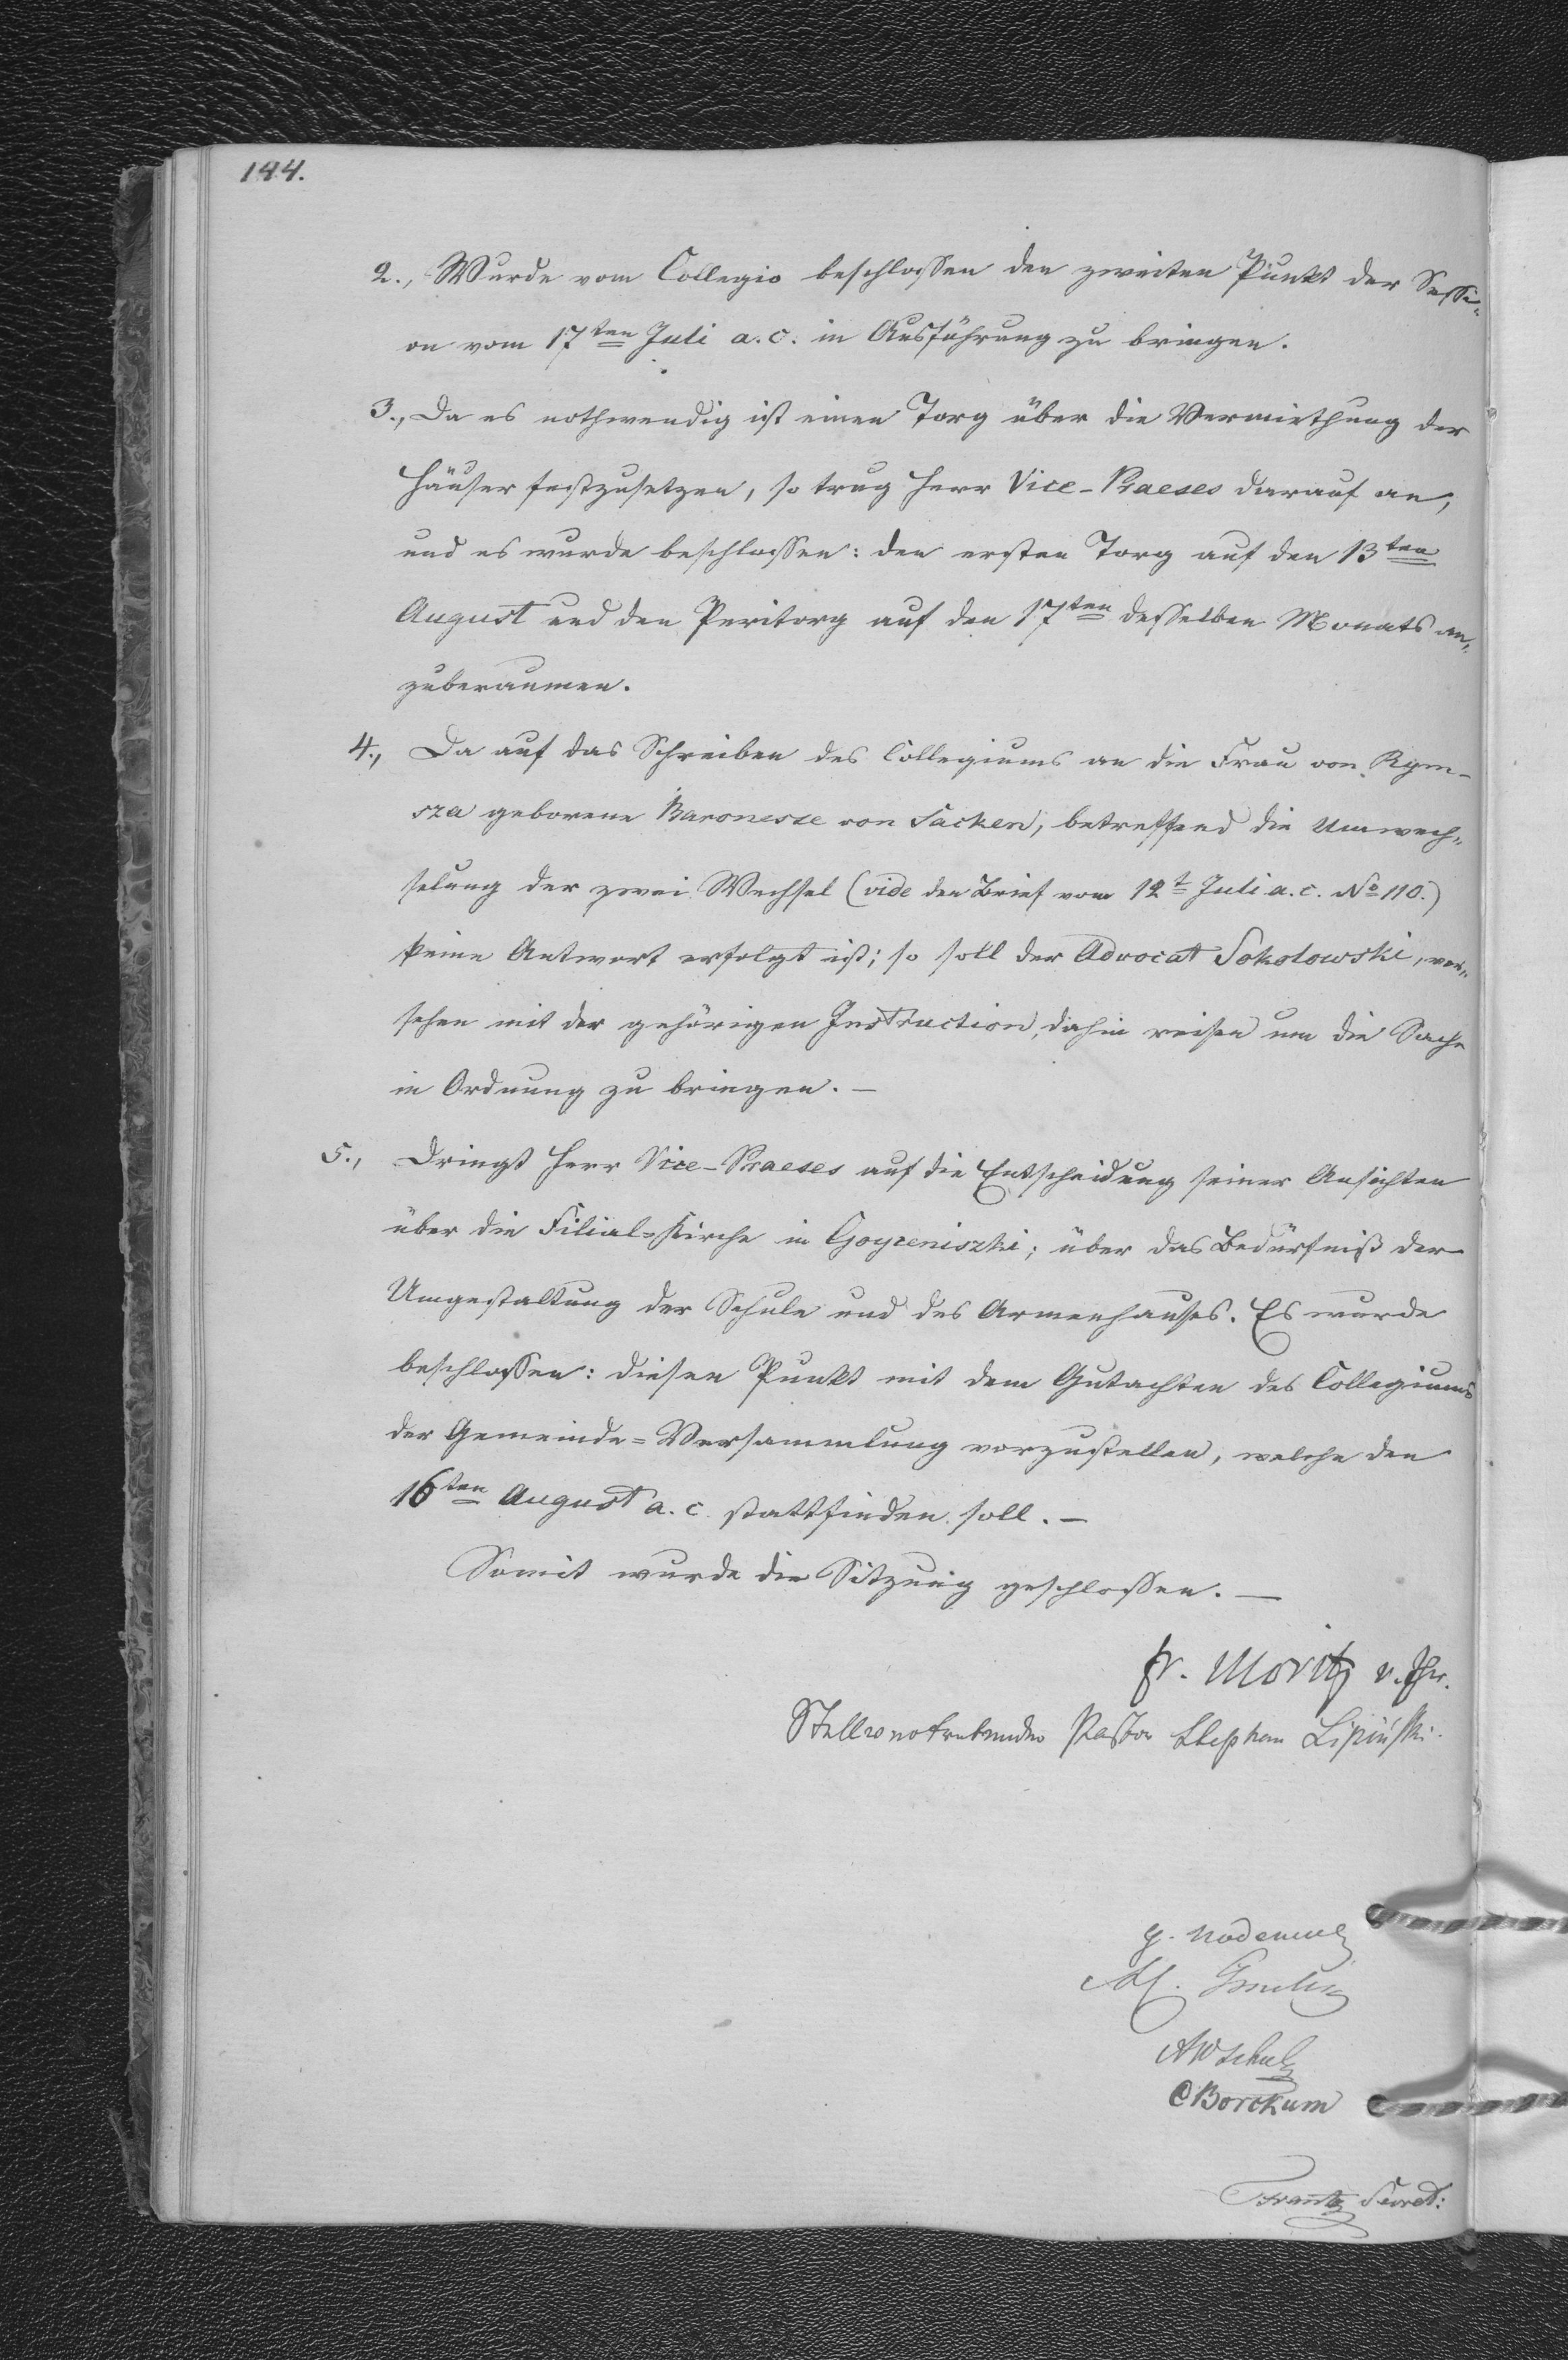 144.
2., Wurde vom Collegio beschlossen den zweiten Punkt der Sessi„
on vom 17ten Juli a. c. in Ausführung zu bringen.
3., Da es nothwendig ist einen Torg über die Vermiethung der
Häuser festzusetzen, so trug Herr Vice-Praeses darauf an,
und es wurde beschlossen: den ersten Torg auf den 13ten
August und den Peritorg auf den 17ten desselben Monats an„
zuberaumen.
4., Da auf das Schreiben des Collegiums an die Frau von Rym-
sza geborene Baronesse von Sacken, betreffend die Umwech„
selung der zwei Wechsel (vide den Brief vom 12t Juli a. c. No 110.)
keine Antwort erfolgt ist; so soll der Advocat Sokolowski, ver„
sehen mit der gehörigen Instruction, dahin reisen um die Sache
in Ordnung zu bringen. —
5., Dringt Herr Vice-Praeses auf die Entscheidung seiner Ansichten
über die Filial-Kirche in Goyzeniszki; über das Bedürfniß der
Umgestaltung der Schule und des Armenhauses. Es wurde
beschlossen: diesen Punkt mit dem Gutachten des Collegiums
der Gemeinde=Versammlung vorzustellen, welche den
16ten August a. c. stattfinden soll. —
Somit wurde die Sitzung geschlossen. —
Fr. Moritz
Stellvertretender Pastor Stephan Lipiński.
AW Schulz
C Borckum
Frantz Secret: